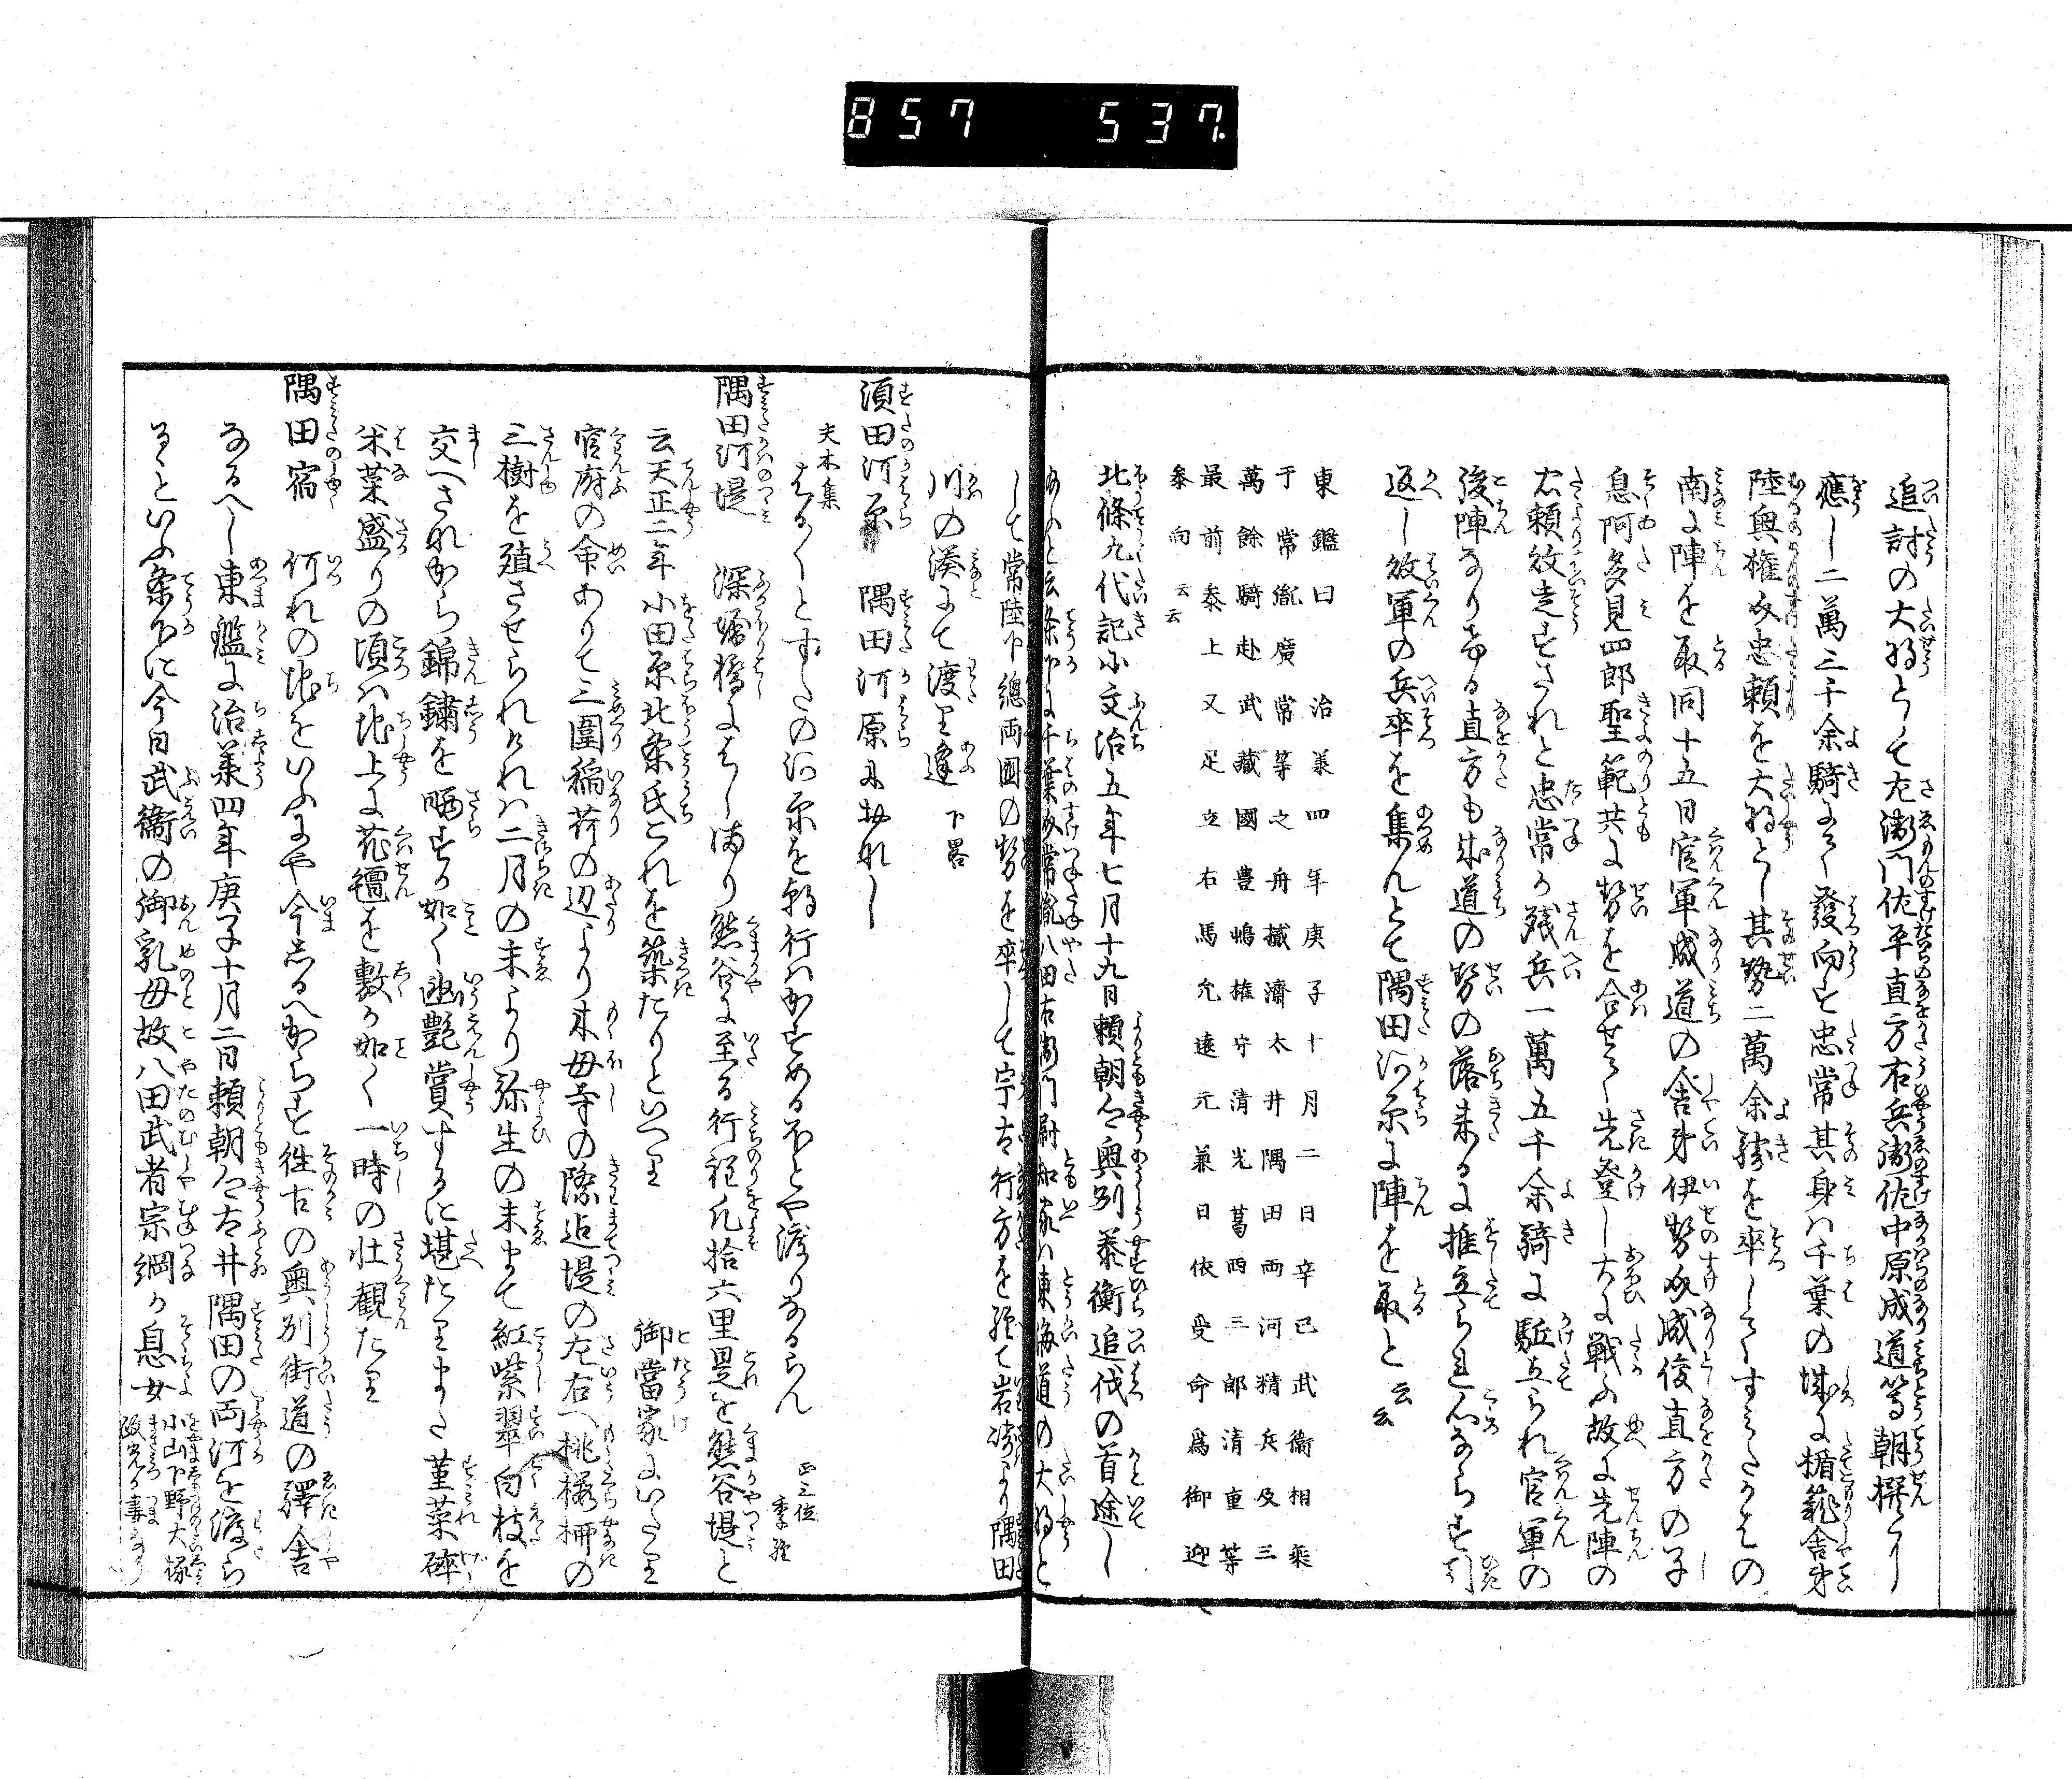 857 537
追討の大将として左衛門佐平直方右兵衛佐中原成道等朝撰たり
應し二萬三千余騎にて發向す忠常其身は千葉の城に楯篭舎弟
陸奥権介忠頼を大将とし其勢二萬余騎を率してすみたかはの
南に陣を取同十五日官軍成道の舎弟伊勢介成俊直方の子
息阿多見四郎聖範共に勢を合せて先登し大に戦ふ故に先陣の
忠頼敗走すされと忠常か残兵一萬五千余騎に駈立られ官軍の
後陣なりける直方も成道の勢の落来るに推立られ心ならす引
返し敗軍の兵卒を集んとて隅田河原に陣を取と云云
東鑑曰治羕四年庚子十月二日辛巳武衞相乘
于常胤廣常等之舟檝濟太井隅田兩河精兵及三
萬餘騎赴武藏國豊嶋權守清光葛西三郎清重等
最前叅上又足立右馬允遠元兼日依受命爲御迎
叅向云云
北條九代記に文治五年七月十九日頼朝公奥州泰衡追伐の首途し
給ふと云条下に千葉介常胤八田右衛門尉知家は東海道の大将と
して常陸下總両國の勢を卒して宇古行方を經て岩崎より隅田
川の湊にて渡り逢下畧
須田河原 隅田河原に如れし
はる〱とすたの河原を朝行はかすめるほとや渡りなるらん 正三位季經
夫木集
隅田河堤 深堀橋にはしまり熊谷に至る行程凡拾六里是を熊谷堤と
云天正二年小田原北条氏これを築たりといへり 御當家にいたり
官府の命ありて三圍稲荷の辺より木母寺の際迄堤の左右へ桃櫻柳の
三樹を殖させられけれは二月の末より弥生の末まて紅紫翠白枝を
交へされから錦繍を晒すか如く幽艶賞するに堪たりまた菫菜砕
米菜盛りの頃は地上に花氊を敷か如く一時の壮観たり
隅田宿 何れの地をいふにや今しるへからす往古の奥州街道の驛舎
なるへし東鑑に治羕四年庚子十月二日頼朝公古井隅田の両河を渡ら
るゝといふ条下に今日武衞の御乳母故八田武者宗綱か息女小山下野大掾政光か妻なり